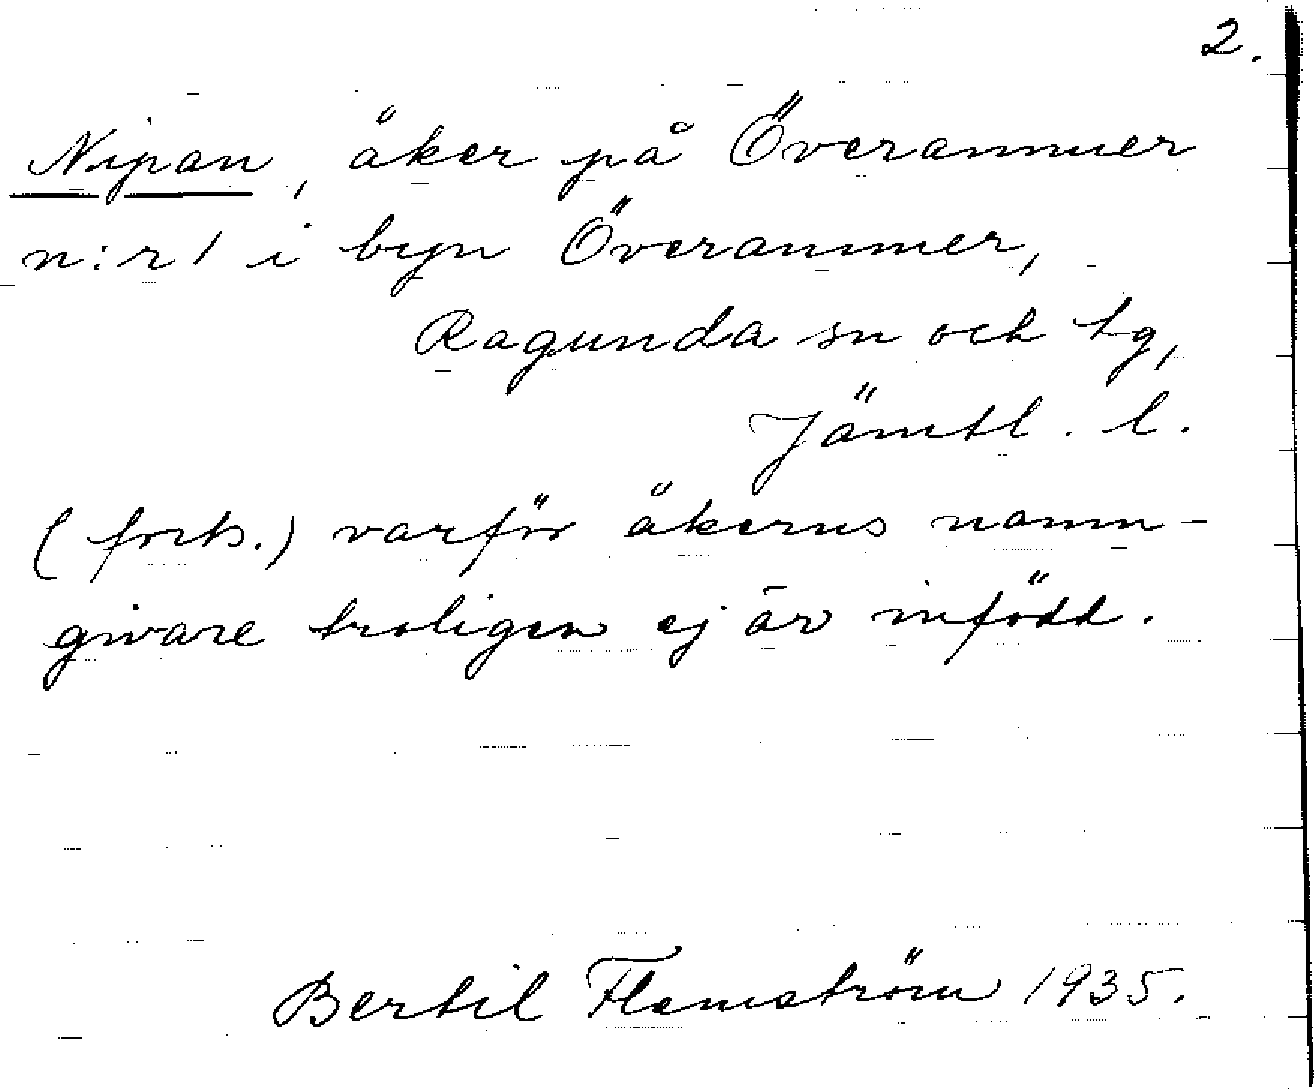 2.
Nipan, åker på Överammer
n:r 1 i byn Överammer,
Ragunda sn och tg,
Jämtl. l.
(forts.) varför åkerns namn-
givare troligen ej är infödd.
Bertil Flemström 1935.